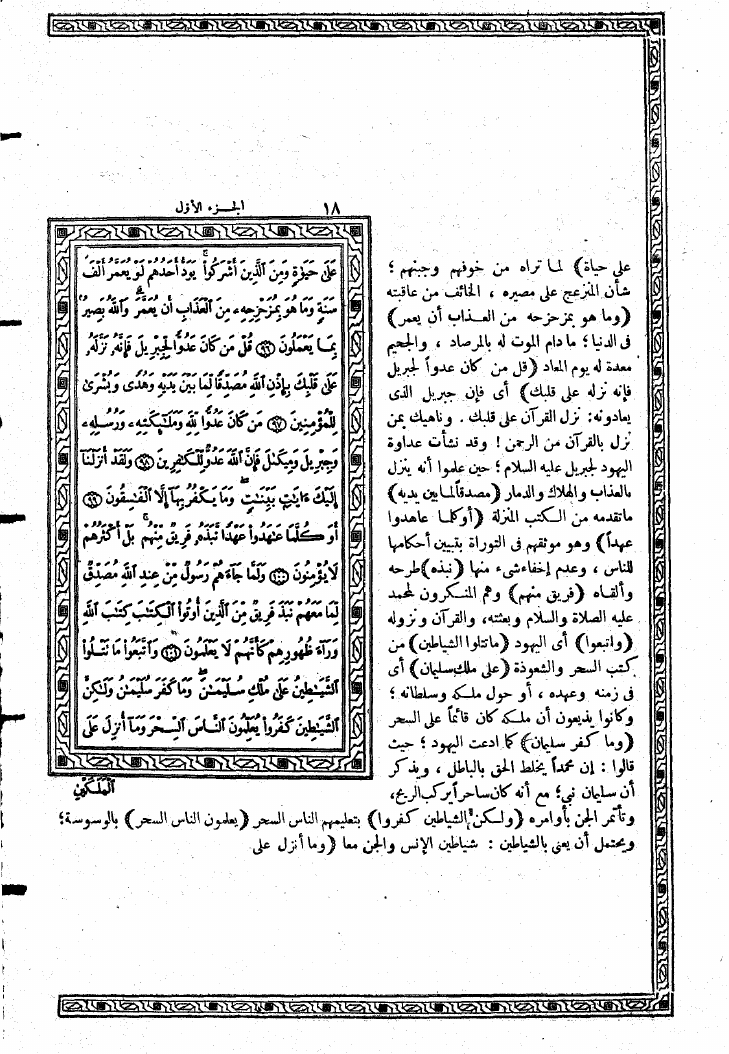 ١٨ الجزء الأول
عَلَىٰ حَيَوٰةٍ وَمِنَ ٱلَّذِينَ أَشْرَكُوا۟ يَوَدُّ أَحَدُهُمْ لَوْ يُعَمَّرُ أَلْفَ
سَنَةٍ وَمَا هُوَ بِمُزَحْزِحِهِۦ مِنَ ٱلْعَذَابِ أَن يُعَمَّرَ وَٱللَّهُ بَصِيرٌۢ
بِمَا يَعْمَلُونَ ﴿٩٦﴾ قُلْ مَن كَانَ عَدُوًّا لِّجِبْرِيلَ فَإِنَّهُۥ نَزَّلَهُۥ
عَلَىٰ قَلْبِكَ بِإِذْنِ ٱللَّهِ مُصَدِّقًا لِّمَا بَيْنَ يَدَيْهِ وَهُدًى وَبُشْرَىٰ
لِلْمُؤْمِنِينَ ﴿٩٧﴾ مَن كَانَ عَدُوًّا لِّلَّهِ وَمَلَـٰٓئِكَتِهِۦ وَرُسُلِهِۦ
وَجِبْرِيلَ وَمِيكَىٰلَ فَإِنَّ ٱللَّهَ عَدُوٌّ لِّلْكَـٰفِرِينَ ﴿٩٨﴾ وَلَقَدْ أَنزَلْنَآ
إِلَيْكَ ءَايَـٰتٍۭ بَيِّنَـٰتٍ وَمَا يَكْفُرُ بِهَآ إِلَّا ٱلْفَـٰسِقُونَ ﴿٩٩﴾
أَوَكُلَّمَا عَـٰهَدُوا۟ عَهْدًا نَّبَذَهُۥ فَرِيقٌ مِّنْهُم بَلْ أَكْثَرُهُمْ
لَا يُؤْمِنُونَ ﴿١٠٠﴾ وَلَمَّا جَآءَهُمْ رَسُولٌ مِّنْ عِندِ ٱللَّهِ مُصَدِّقٌ
لِّمَا مَعَهُمْ نَبَذَ فَرِيقٌ مِّنَ ٱلَّذِينَ أُوتُوا۟ ٱلْكِتَـٰبَ كِتَـٰبَ ٱللَّهِ
وَرَآءَ ظُهُورِهِمْ كَأَنَّهُمْ لَا يَعْلَمُونَ ﴿١٠١﴾ وَٱتَّبَعُوا۟ مَا تَتْلُوا۟
ٱلشَّيَـٰطِينُ عَلَىٰ مُلْكِ سُلَيْمَـٰنَ وَمَا كَفَرَ سُلَيْمَـٰنُ وَلَـٰكِنَّ
ٱلشَّيَـٰطِينَ كَفَرُوا۟ يُعَلِّمُونَ ٱلنَّاسَ ٱلسِّحْرَ وَمَآ أُنزِلَ عَلَى
ٱلْمَلَكَيْنِ
على حياة) لما تراه من خوفهم وجبنهم ؛
شأن المنزعج على مصيره ، الخائف من عاقبته
(وما هو بمزحزحه من العـذاب أن يعمر)
فى الدنيا ؛ مادام الموت له بالمرصاد ، والجحيم
معدة له يوم المعاد (قل من كان عدواً لجبريل
فإنه نزله على قلبك) أى فإن جبريل الذى
يعادونه: نزل القرآن على قلبك . وناهيك بمن
نزل بالقرآن من الرحمن ! وقد نشأت عداوة
اليهود لجبريل عليه السلام ؛ حين علموا أنه ينزل
بالعذاب والهلاك والدمار (مصدقاً لما بين يديه)
ماتقدمه من الكتب المنزلة (أوكلما عاهدوا
عهداً) وهو موثقهم فى التوراة بتبيين أحكامها
للناس ، وعدم إخفاء شىء منها (نبذه) طرحه
وألقاه (فريق منهم) وهم المنكرون لمحمد
عليه الصلاة والسلام وبعثته، والقرآن ونزوله
(واتبعوا) أى اليهود (ماتتلوا الشياطين) من
كتب السحر والشعوذة (على ملك سليمان) أى
فى زمنه وعهده ، أو حول ملكه وسلطانه ؛
وكانوا يذيعون أن ملكه كان قائماً على السحر
(وما كفر سليمان) كما ادعت اليهود ؛ حيث
قالوا : إن محمداً يخلط الحق بالباطل ، ويذكر
أن سليمان نبي؛ مع أنه كان ساحراً يركب الريح،
وتأتمر الجن بأوامره (ولكن الشياطين كفروا) بتعليمهم الناس السحر (يعلمون الناس السحر) بالوسوسة؛
ويحتمل أن يعنى بالشياطين : شياطين الإنس والجن معا (وما أنزل على